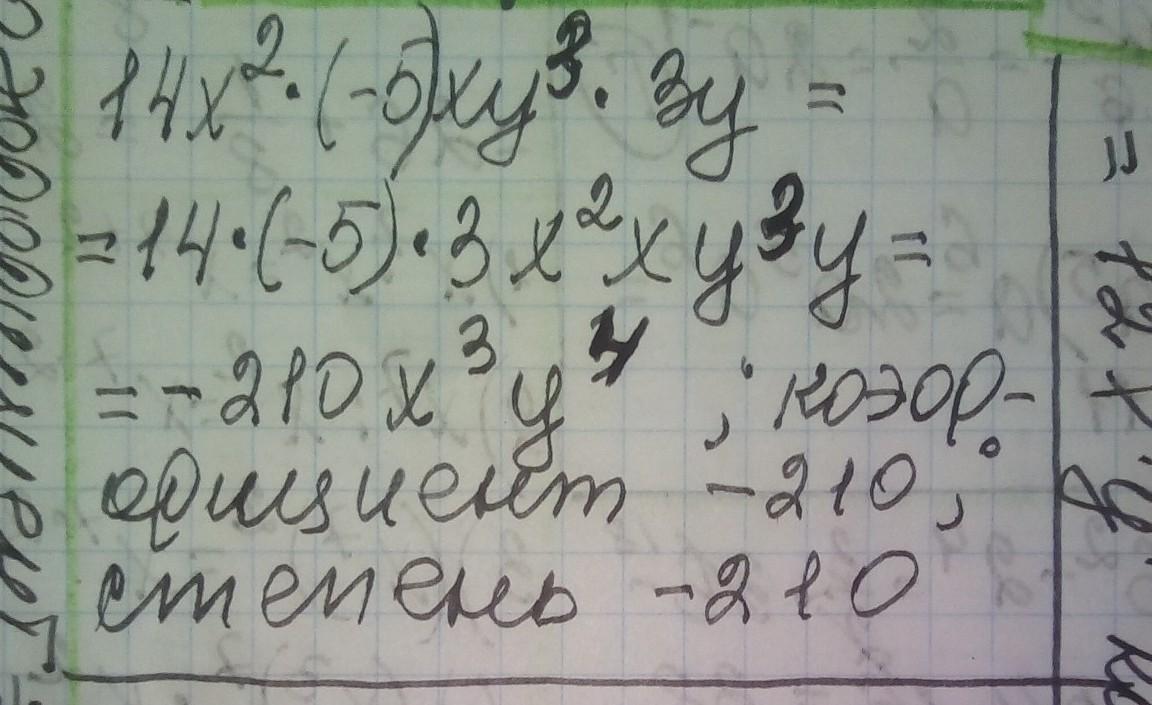 14x²·(-5)xy³·3y=
=14·(-5)·3x²xy³y=
=-210x³y⁴; коэф-
фициент -210;
степень -210